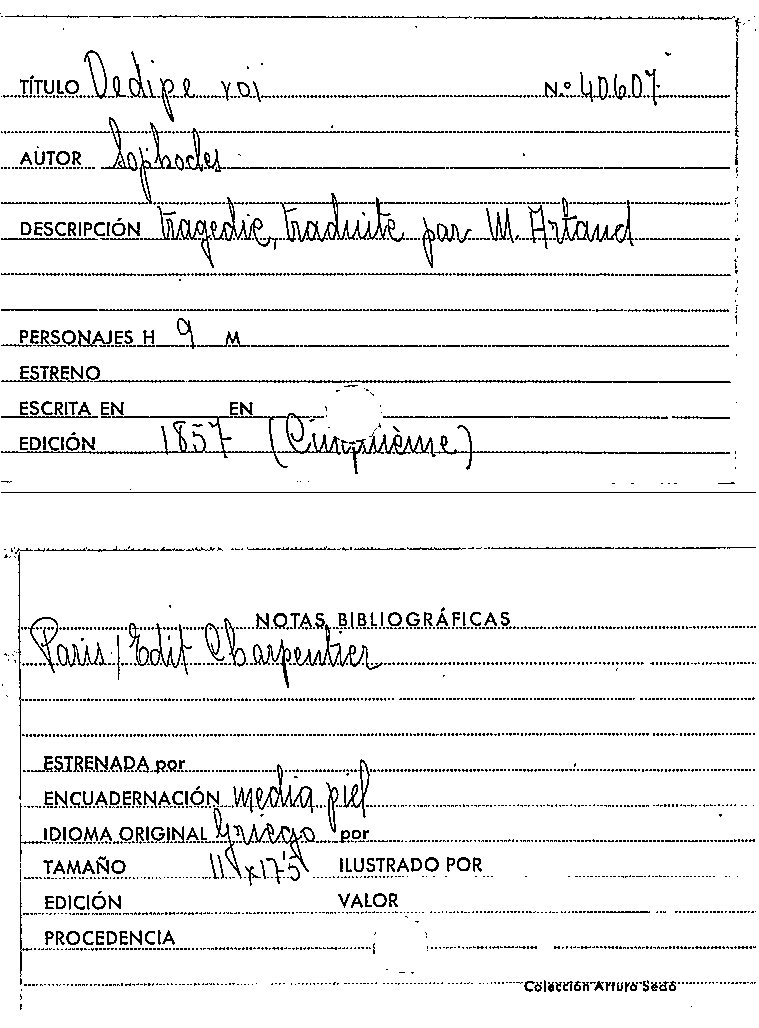 TÍTULO Oedipe roi N.º 40607
AUTOR Sophocles
DESCRIPCIÓN tragedie, traduite par M. Artaud
PERSONAJES H 9 M
ESTRENO
ESCRITA EN EN
EDICIÓN 1857 (Cinquième)
NOTAS BIBLIOGRÁFICAS
Paris / Edit Charpentier
ESTRENADA por
ENCUADERNACIÓN media piel
IDIOMA ORIGINAL Griego por
TAMAÑO 11 x 17'5 ILUSTRADO POR
EDICIÓN VALOR
PROCEDENCIA
Colección Arturo Sedó